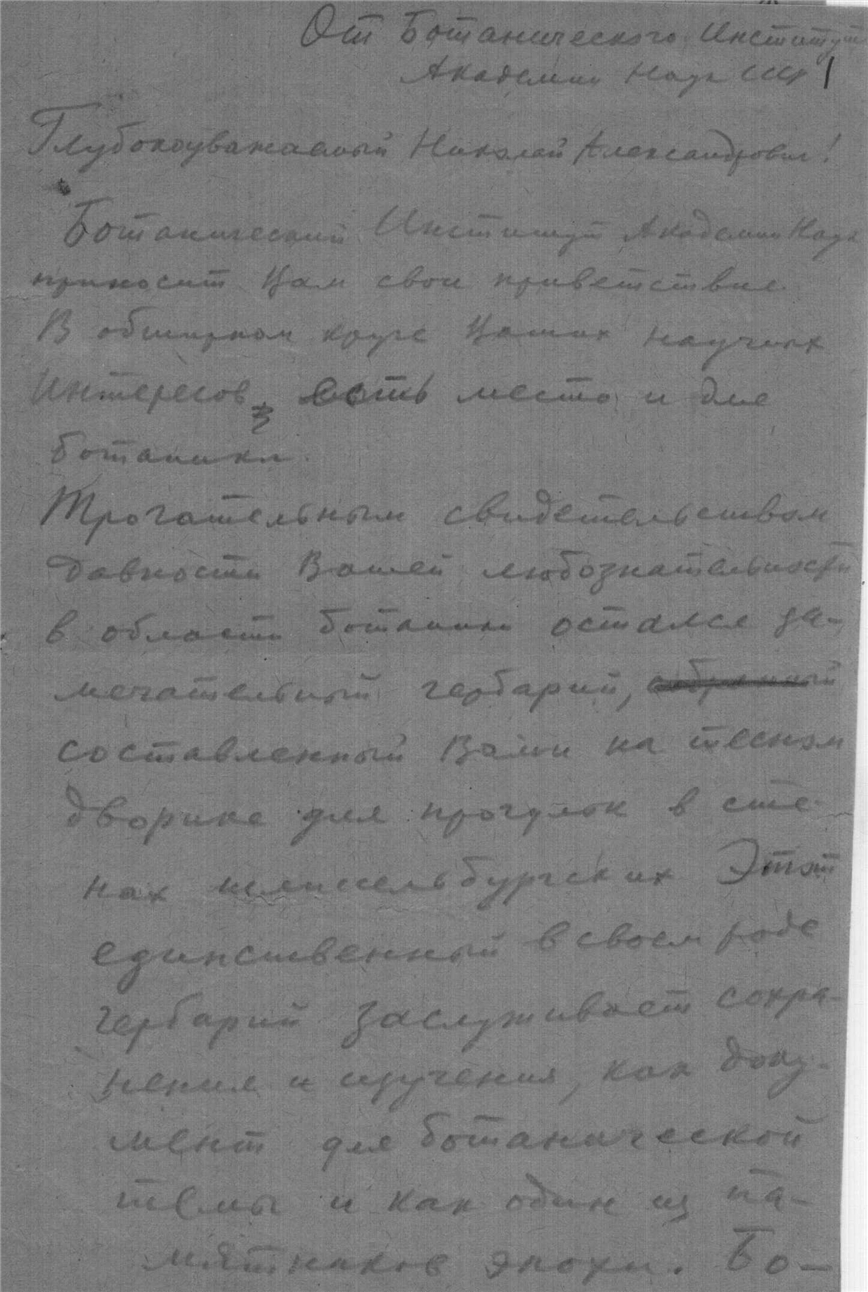 От Ботанического Институт
Академии Наук СССР
Глубокоуважаемый Николай Александрович!
Ботанический Институт Академии Наук
приносит Вам свои приветствие.
В обширном круге Ваших научных
Интересов есть место и для
ботаники.
Трогательным свидетельством
давности Вашей любознательности
в области ботаники остался за-
мечательный гербарий, собранный
составленный Вами на тесном
дворике для прогулок в сте-
нах шлиссельбургских Этот
единственный в своем роде
гербарий заслуживает сохра-
нения и изучения, как доку-
мент для ботанической
темы и как один из па-
мятников эпохи. Бо-